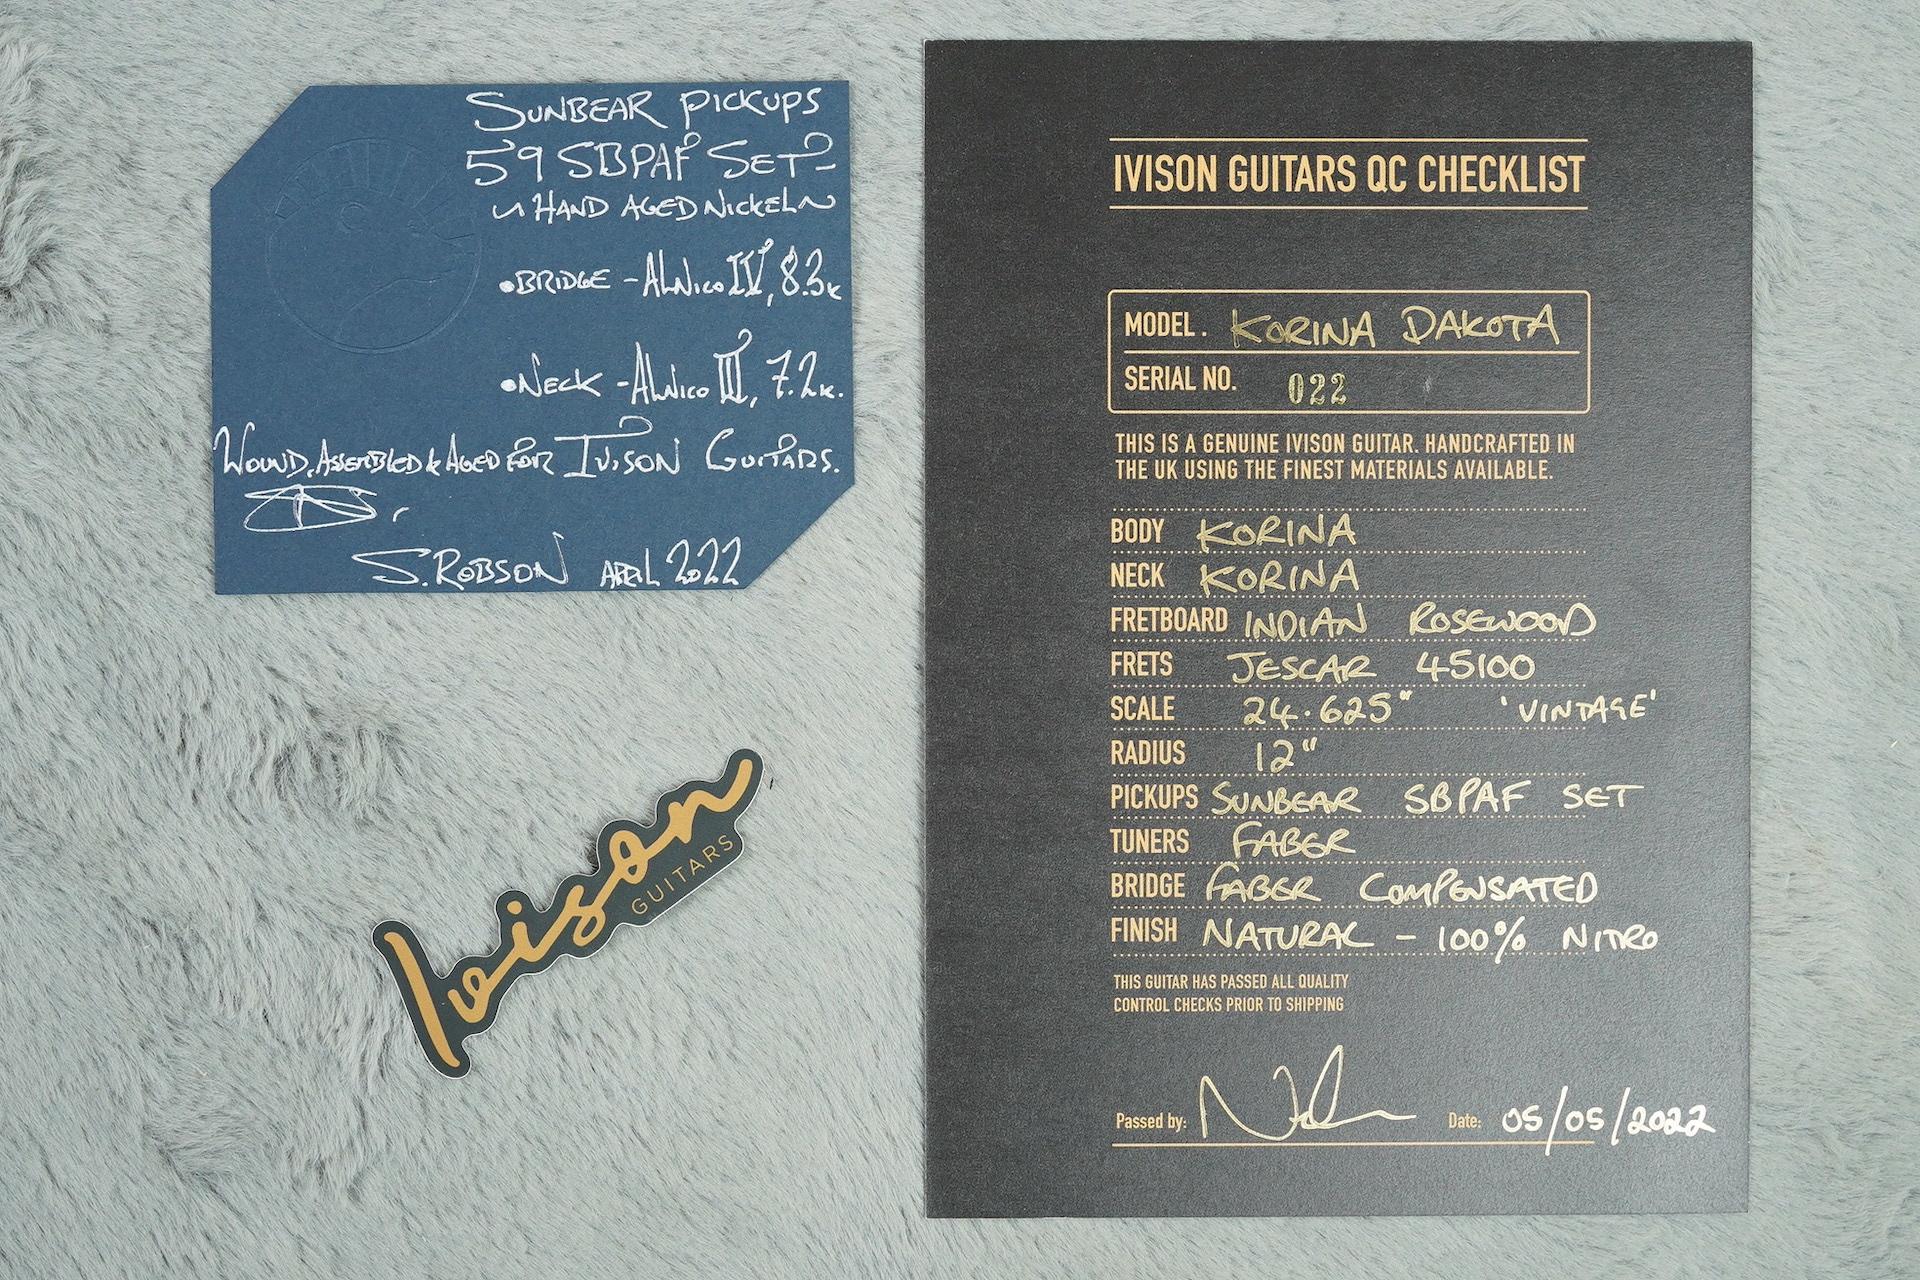 SUNBEAR PICKUPS
59 SBPAF SET
~ HAND AGED NICKEL ~
• BRIDGE - ALNICO IV, 8.3K
• NECK - ALNICO III, 7.2K.
WOUND, ASSEMBLED & AGED FOR IVISON GUITARS.
S. ROBSON APRIL 2022
Ivison
GUITARS
IVISON GUITARS QC CHECKLIST
MODEL. KORINA DAKOTA
SERIAL NO. 022
THIS IS A GENUINE IVISON GUITAR. HANDCRAFTED IN
THE UK USING THE FINEST MATERIALS AVAILABLE.
BODY KORINA
NECK KORINA
FRETBOARD INDIAN ROSEWOOD
FRETS JESCAR 45100
SCALE 24.625" 'VINTAGE'
RADIUS 12"
PICKUPS SUNBEAR SBPAF SET
TUNERS FABER
BRIDGE FABER COMPENSATED
FINISH NATURAL - 100% NITRO
THIS GUITAR HAS PASSED ALL QUALITY
CONTROL CHECKS PRIOR TO SHIPPING
Passed by: Date: 05/05/2022